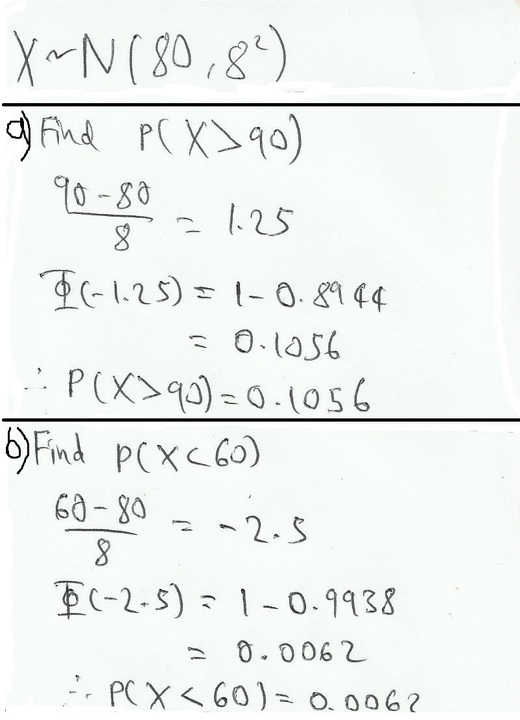 X~N(80,8²)
a) Find P(X>90)
90-80
8
= 1.25
Φ(-1.25) = 1-0.8944
= 0.1056
∴ P(X>90)=0.1056
b) Find P(X<60)
60-80
8
= -2.5
Φ(-2.5) = 1-0.9938
= 0.0062
∴ P(X<60)= 0.0062